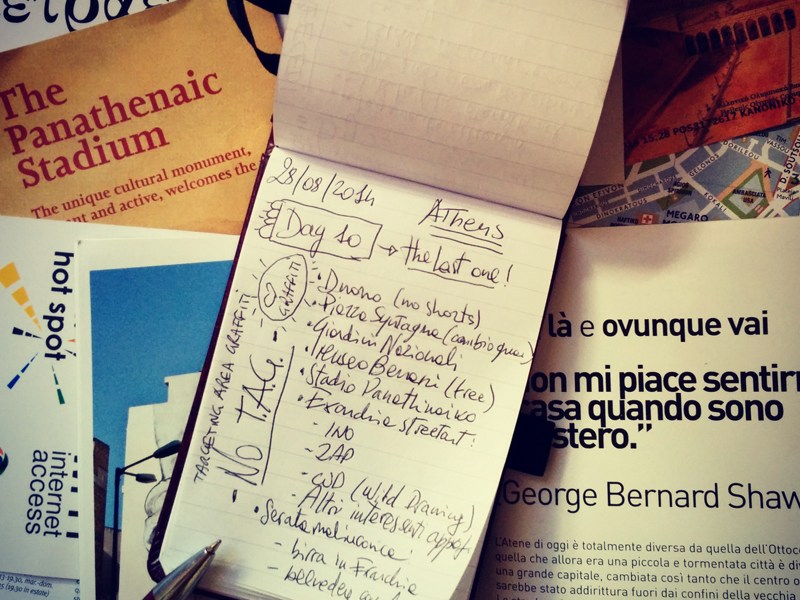 The
Panathenaic
Stadium
The unique cultural monument,
and active, welcomes the
hot spot
internet
access
28/08/2014
Athens
Day 10 → the last one!
GRAFFITI
TARGETING AREA GRAFFITI
- NO T.A.G. -
• Duomo (no shorts)
• Piazza Syntagma (cambio guardia)
• Giardini Nazionali
• Museo Benaki (free)
• Stadio Panathinaiko
• Exarchia streetart:
- INO
- ZAP
- WD (Wild Drawing)
- Altri interessanti
• Serata malinconica:
- birra in Exarchia
- belvedere
15:28 POS
2617 KANONIKO
MEGARO
là e ovunque vai
on mi piace sentirm
casa quando sono
stero.”
George Bernard Shaw
L'Atene di oggi è totalmente diversa da quella dell'Ottoce
quella che allora era una piccola e tormentata città è di
una grande capitale, cambiata così tanto che il centro o
sarebbe stato addirittura fuori dai confini della vecchia